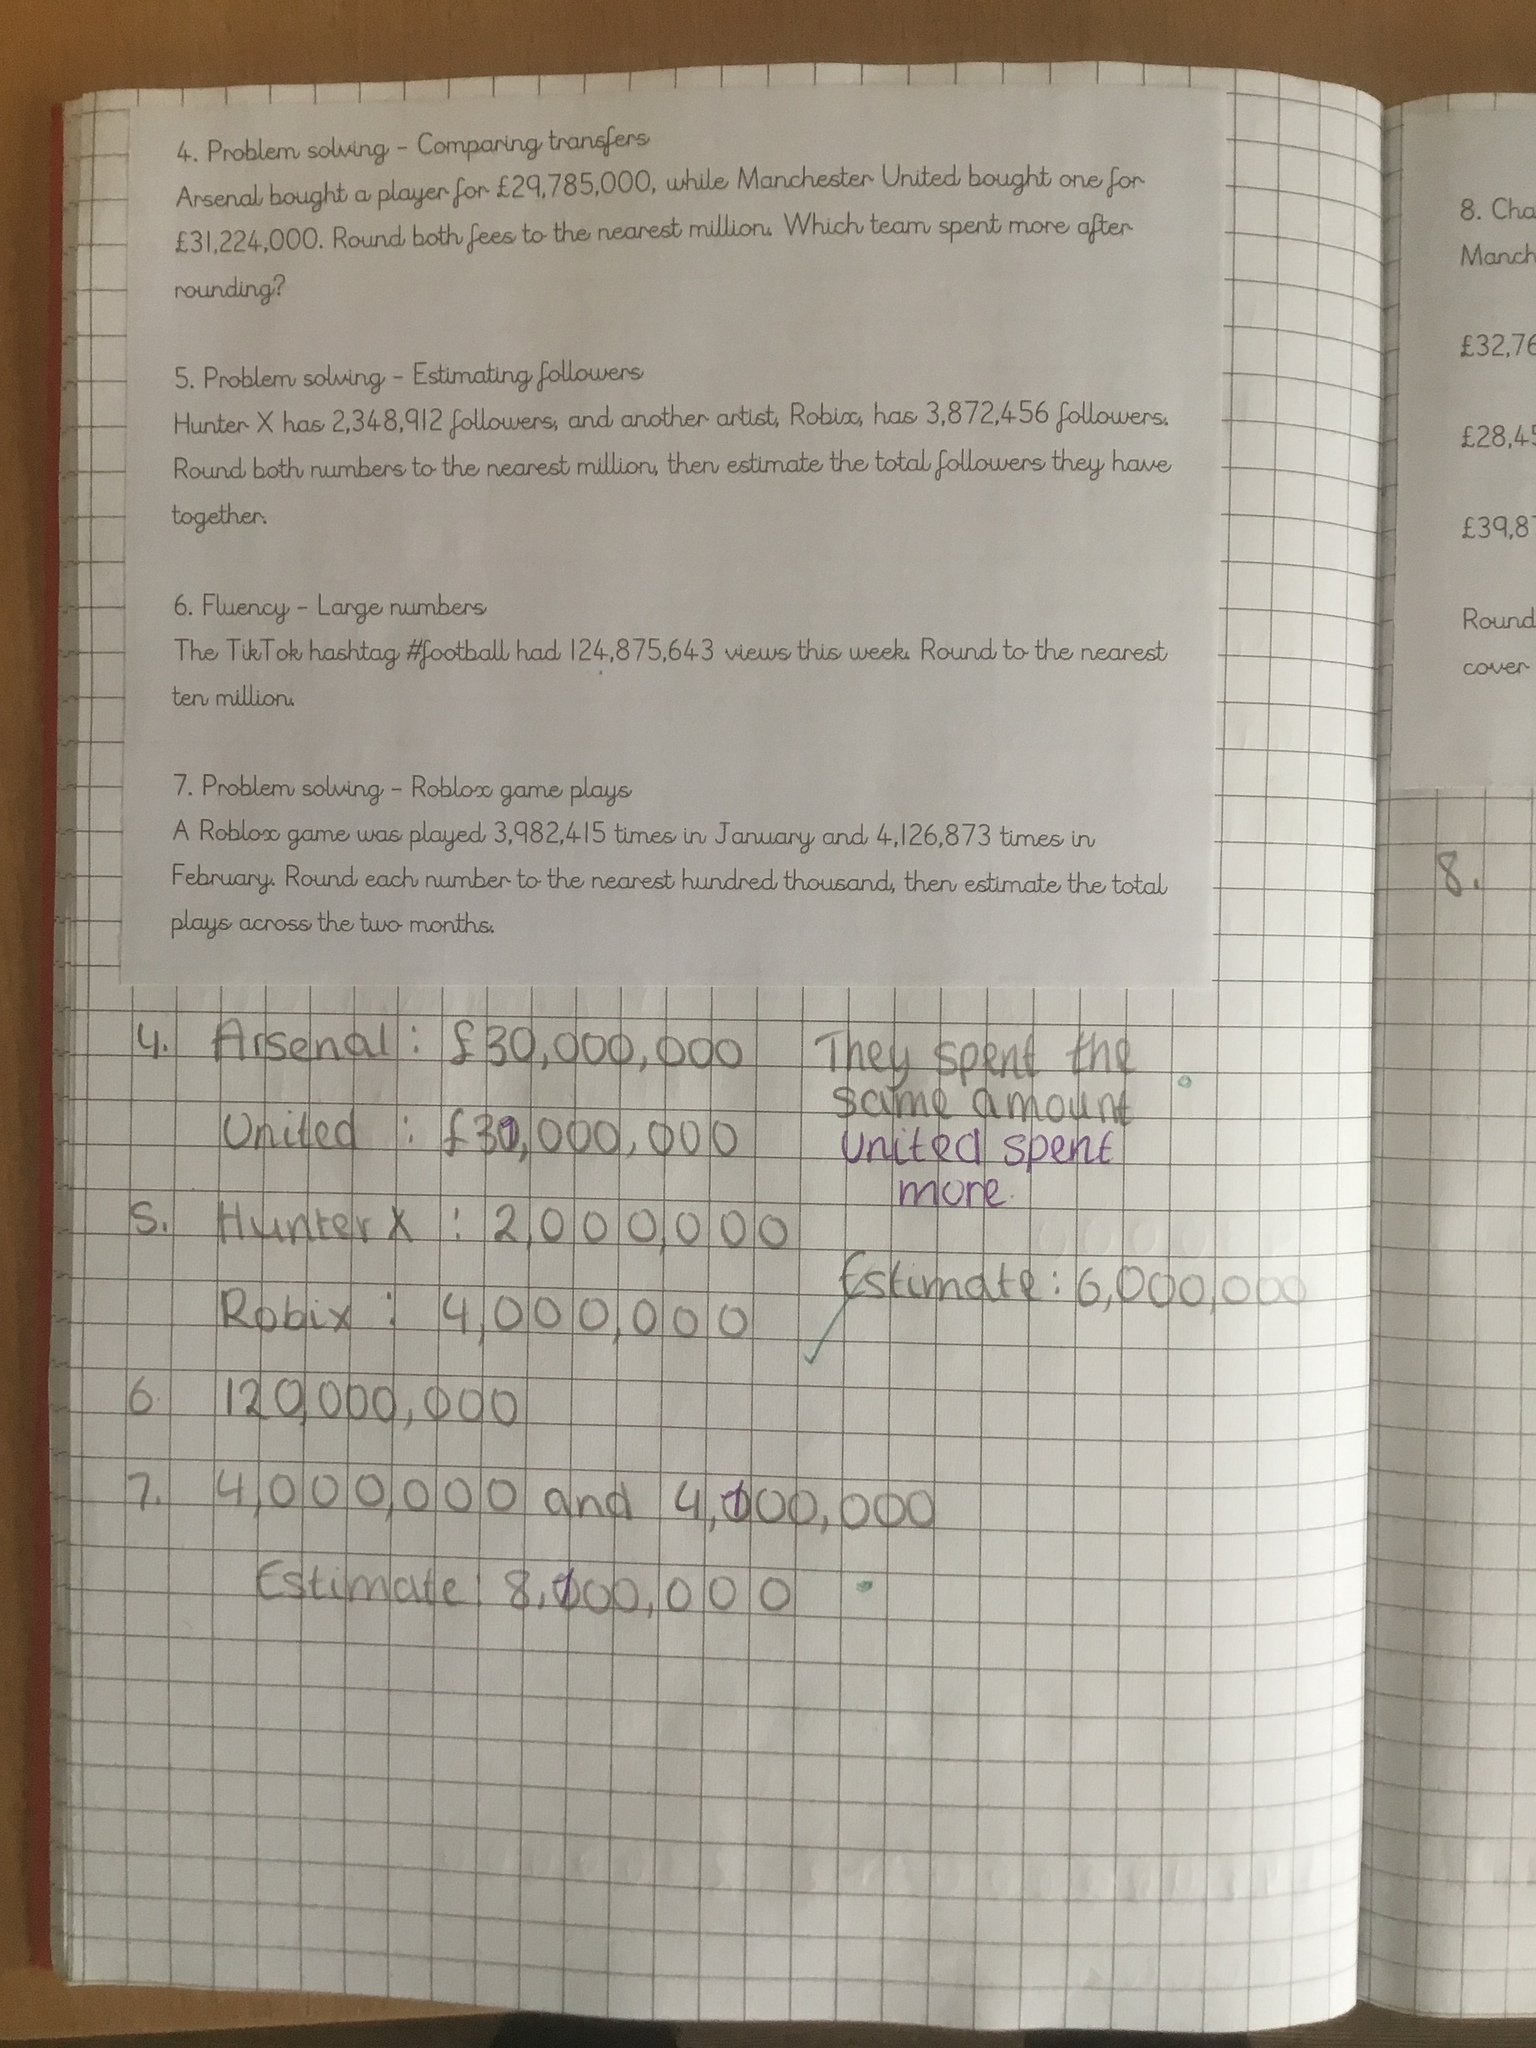 4. Problem solving - Comparing transfers
Arsenal bought a player for £29,785,000, while Manchester United bought one for
£31,224,000. Round both fees to the nearest million. Which team spent more after
rounding?
5. Problem solving - Estimating followers
Hunter X has 2,348,912 followers, and another artist, Robix, has 3,872,456 followers.
Round both numbers to the nearest million, then estimate the total followers they have
together.
6. Fluency - Large numbers
The TikTok hashtag #football had 124,875,643 views this week. Round to the nearest
ten million.
7. Problem solving - Roblox game plays
A Roblox game was played 3,982,415 times in January and 4,126,873 times in
February. Round each number to the nearest hundred thousand, then estimate the total
plays across the two months.
4. Arsenal : £30,000,000
United : £31,000,000
They spent the
same amount
United spent
more.
5. Hunter X : 2,000,000
Robix : 4,000,000
Estimate : 6,000,000
6. 120,000,000
7. 4,000,000 and 4,100,000
Estimate : 8,100,000
8. Cha
Manch
£32,76
£28,45
£39,87
Round
cover
8.